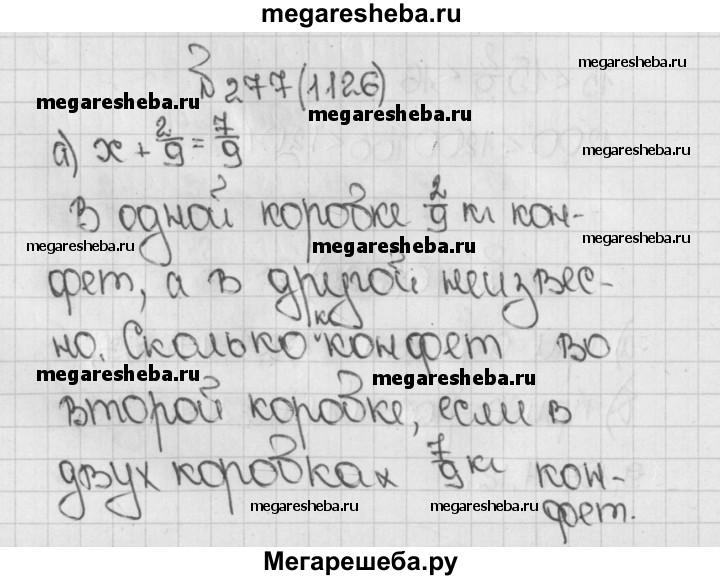 megaresheba.ru
№ 277 (1126)
megaresheba.ru
megaresheba.ru
а) x + 2/9 = 7/9
megaresheba.ru
В одной коробке 2/9 кг кон-
megaresheba.ru
megaresheba.ru
megaresheba.ru
фет, а в другой неизвес-
кг
но. Сколько конфет во
megaresheba.ru
megaresheba.ru
второй коробке, если в
двух коробках 7/9 кг кон-
megaresheba.ru
megaresheba.ru
megaresheba.ru
фет.
Мегарешеба.ру